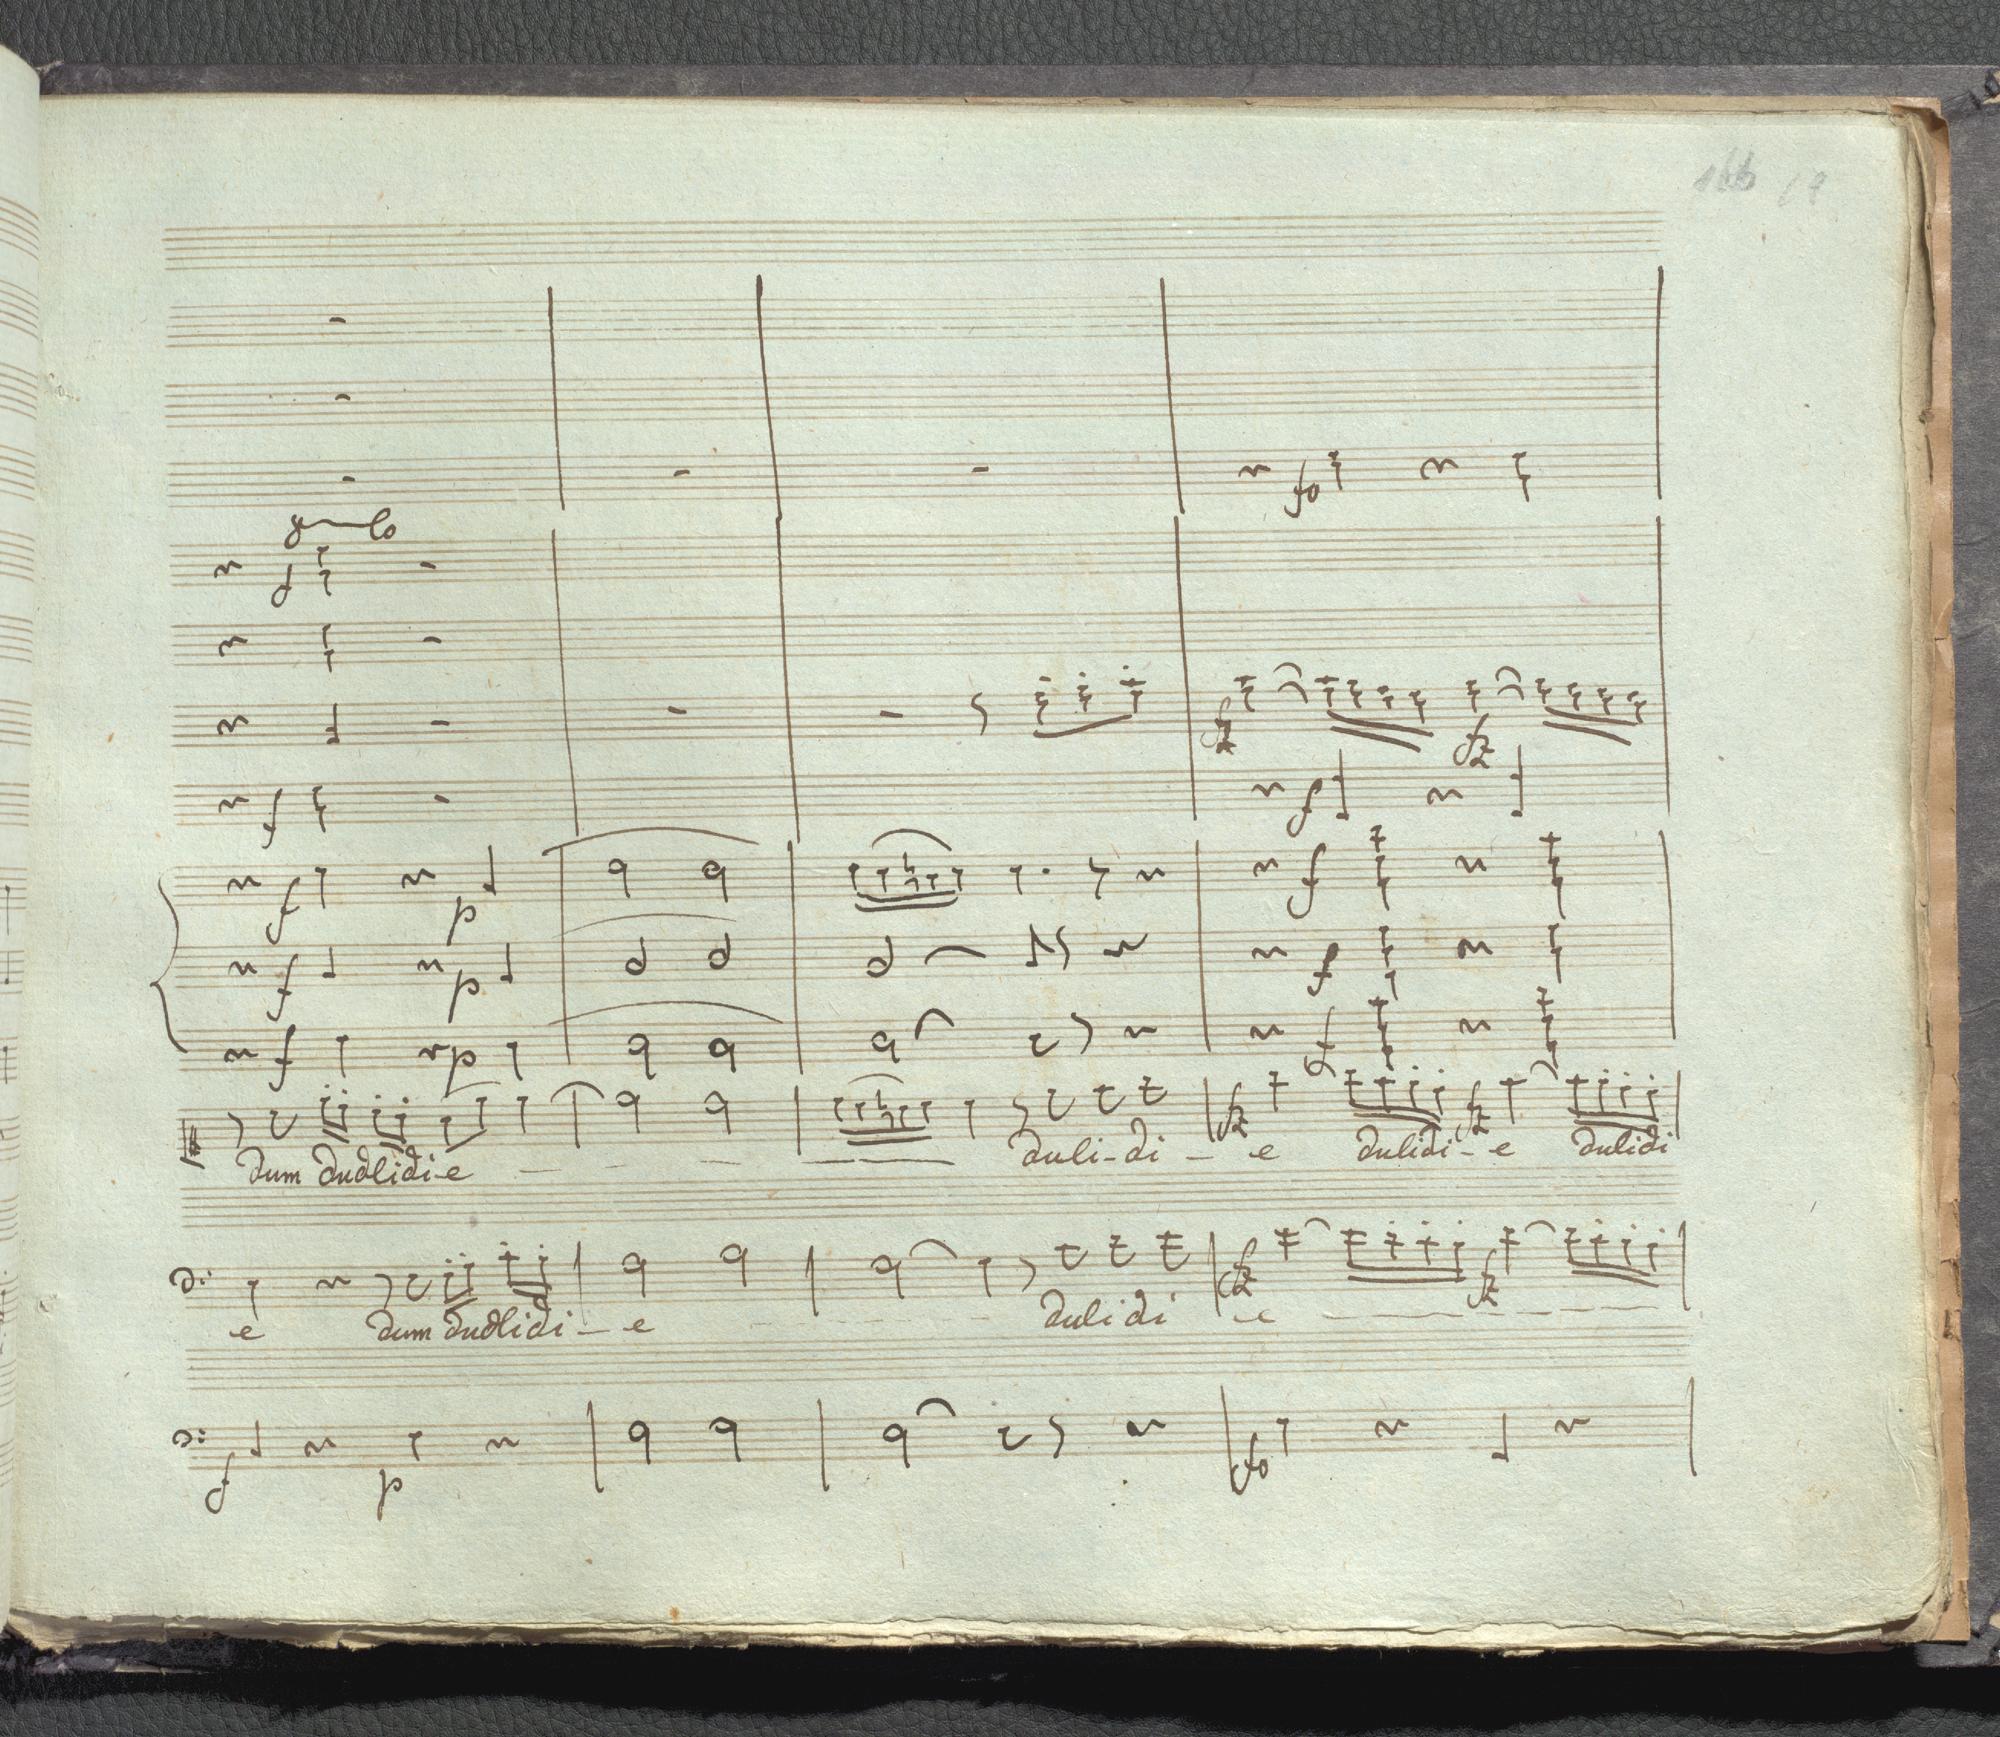 166
fo
8 lo
fz fz
f f
f p f
f p f
f p f
fz fz
dum dudlidi-e duli-di - e dulidi - e dulidi
fz fz
e dum dudlidi - e dulidi - e
f p fo